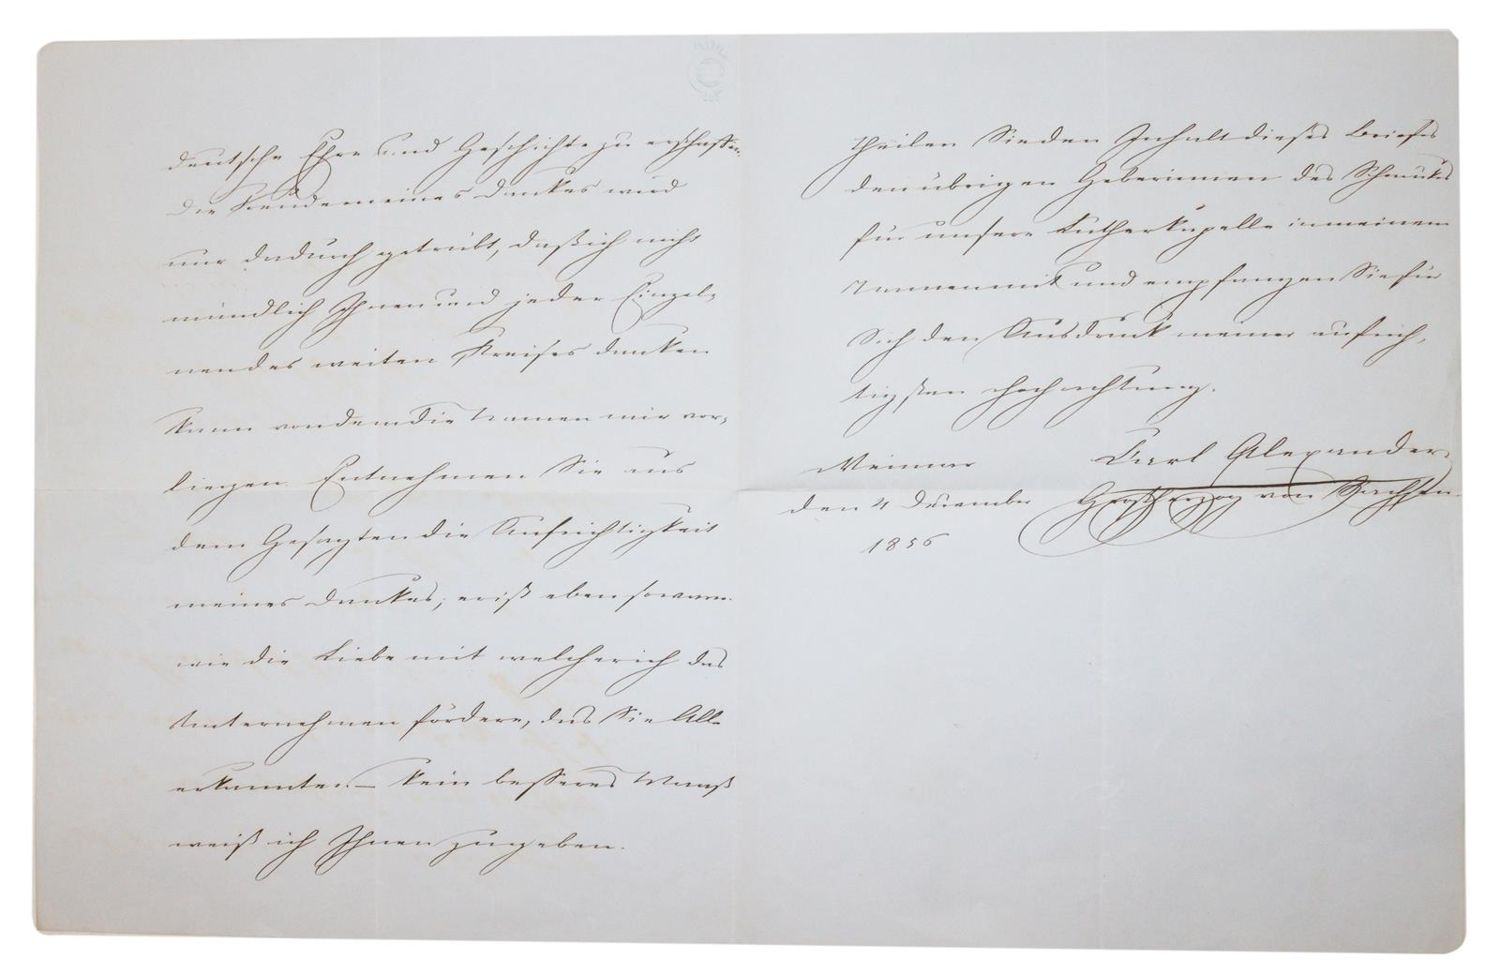 deutsche Ehre und Geschichte zu erschaffen.
Die Freude meines Dankes wird
nur dadurch getrübt, daß ich nicht
mündlich Ihnen und jeder Einzel-
nen des weiten Kreises danken
kann von dem die Namen mir vor-
liegen. Entnehmen Sie aus
dem Gesagten die Aufrichtigkeit
meines Dankes; er ist eben so warm
wie die Liebe mit welcher ich das
Unternehmen fördere, das Sie Alle
erkannten. – Kein besseres Maaß
weiß ich Ihnen zu geben.
Theilen Sie den Inhalt dieses Briefes
den übrigen Geberinnen des Schmuckes
für unsere Lutherkapelle in meinem
Namen mit und empfangen Sie für
Sich den Ausdruck meiner aufrich-
tigsten Hochachtung.
Weimar
den 4 December
1856
Carl Alexander
Großherzog von Sachsen